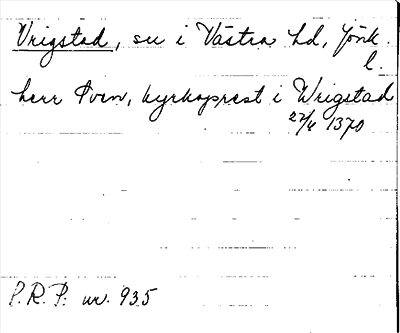 Vrigstad, sn i Västra hd, Jönk.
l.
herr Sven, kyrkoprest i Wrigstad
27/6 1370
P.R.P. nr. 935